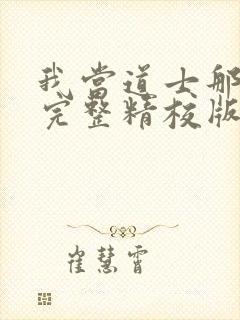 我当道士那
完整精校版
崔慧霄